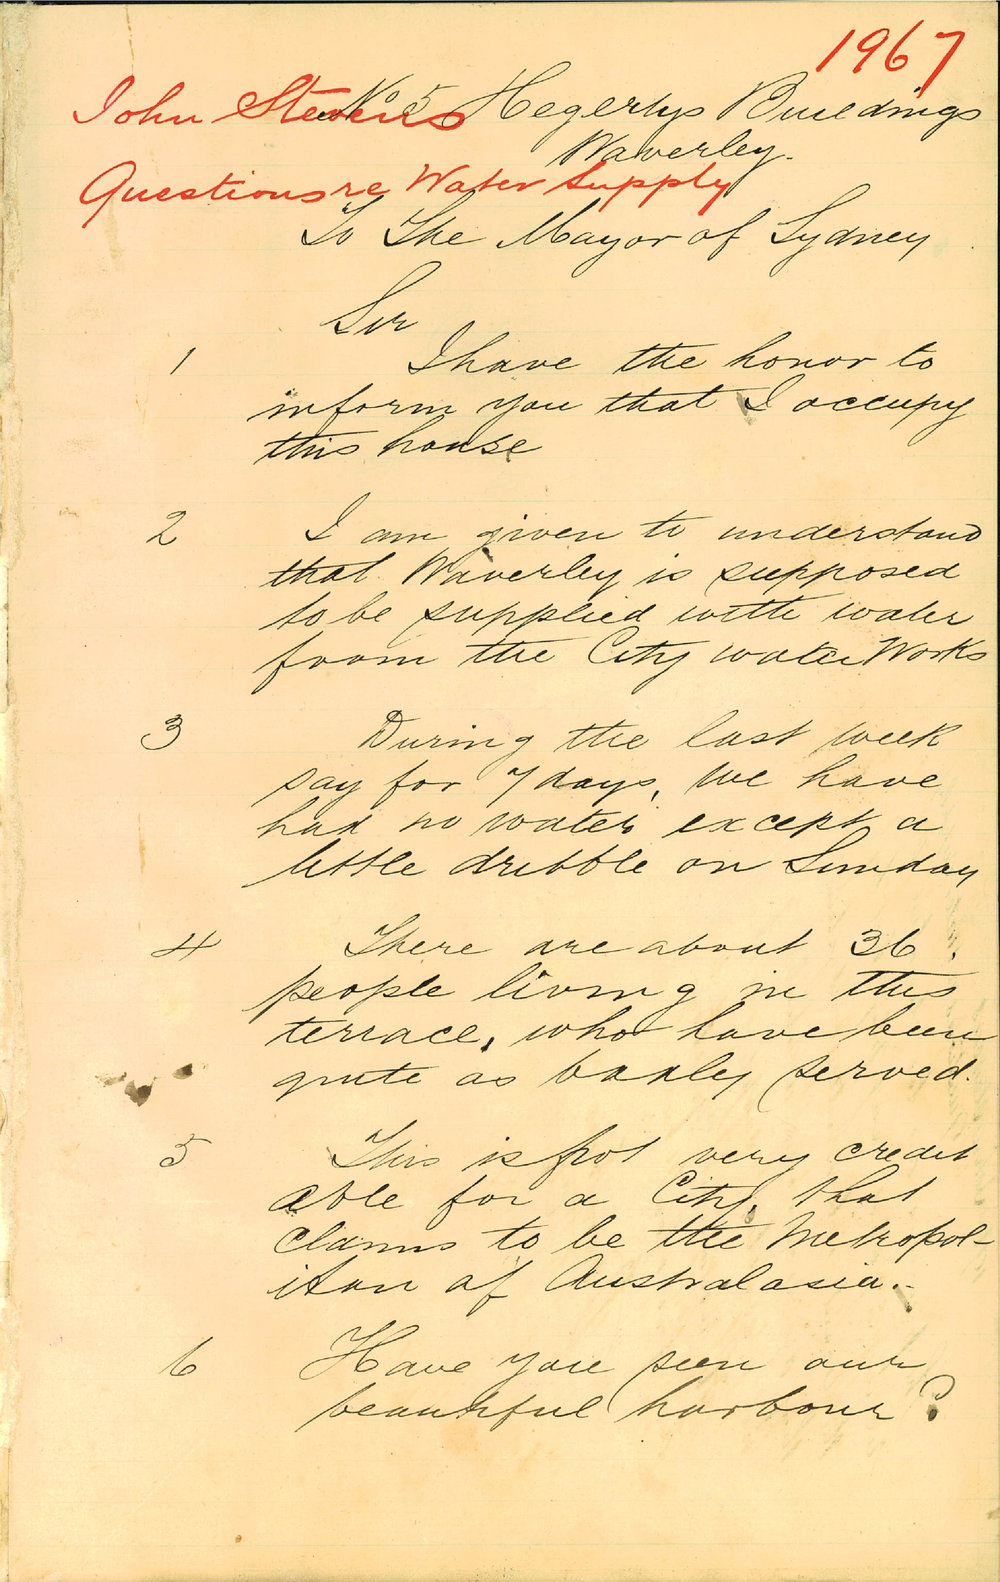 1967
John Stevens
No 5 Hegertys Buildings
Waverley.
Questions re Water Supply
To The Mayor of Sydney
Sir
1 I have the honor to
inform you that I occupy
this house
2 I am given to understand
that Waverley is supposed
to be supplied with water
from the City water Works
3 During the last week
say for 7 days, we have
had no water except a
little dribble on Sunday
4 There are about 36
people living in this
terrace, who have been
quite as badly served.
5 This is not very credit
able for a City, that
claims to be the Metropol-
itan of Australasia.-
6 Have you seen our
beautiful harbour?